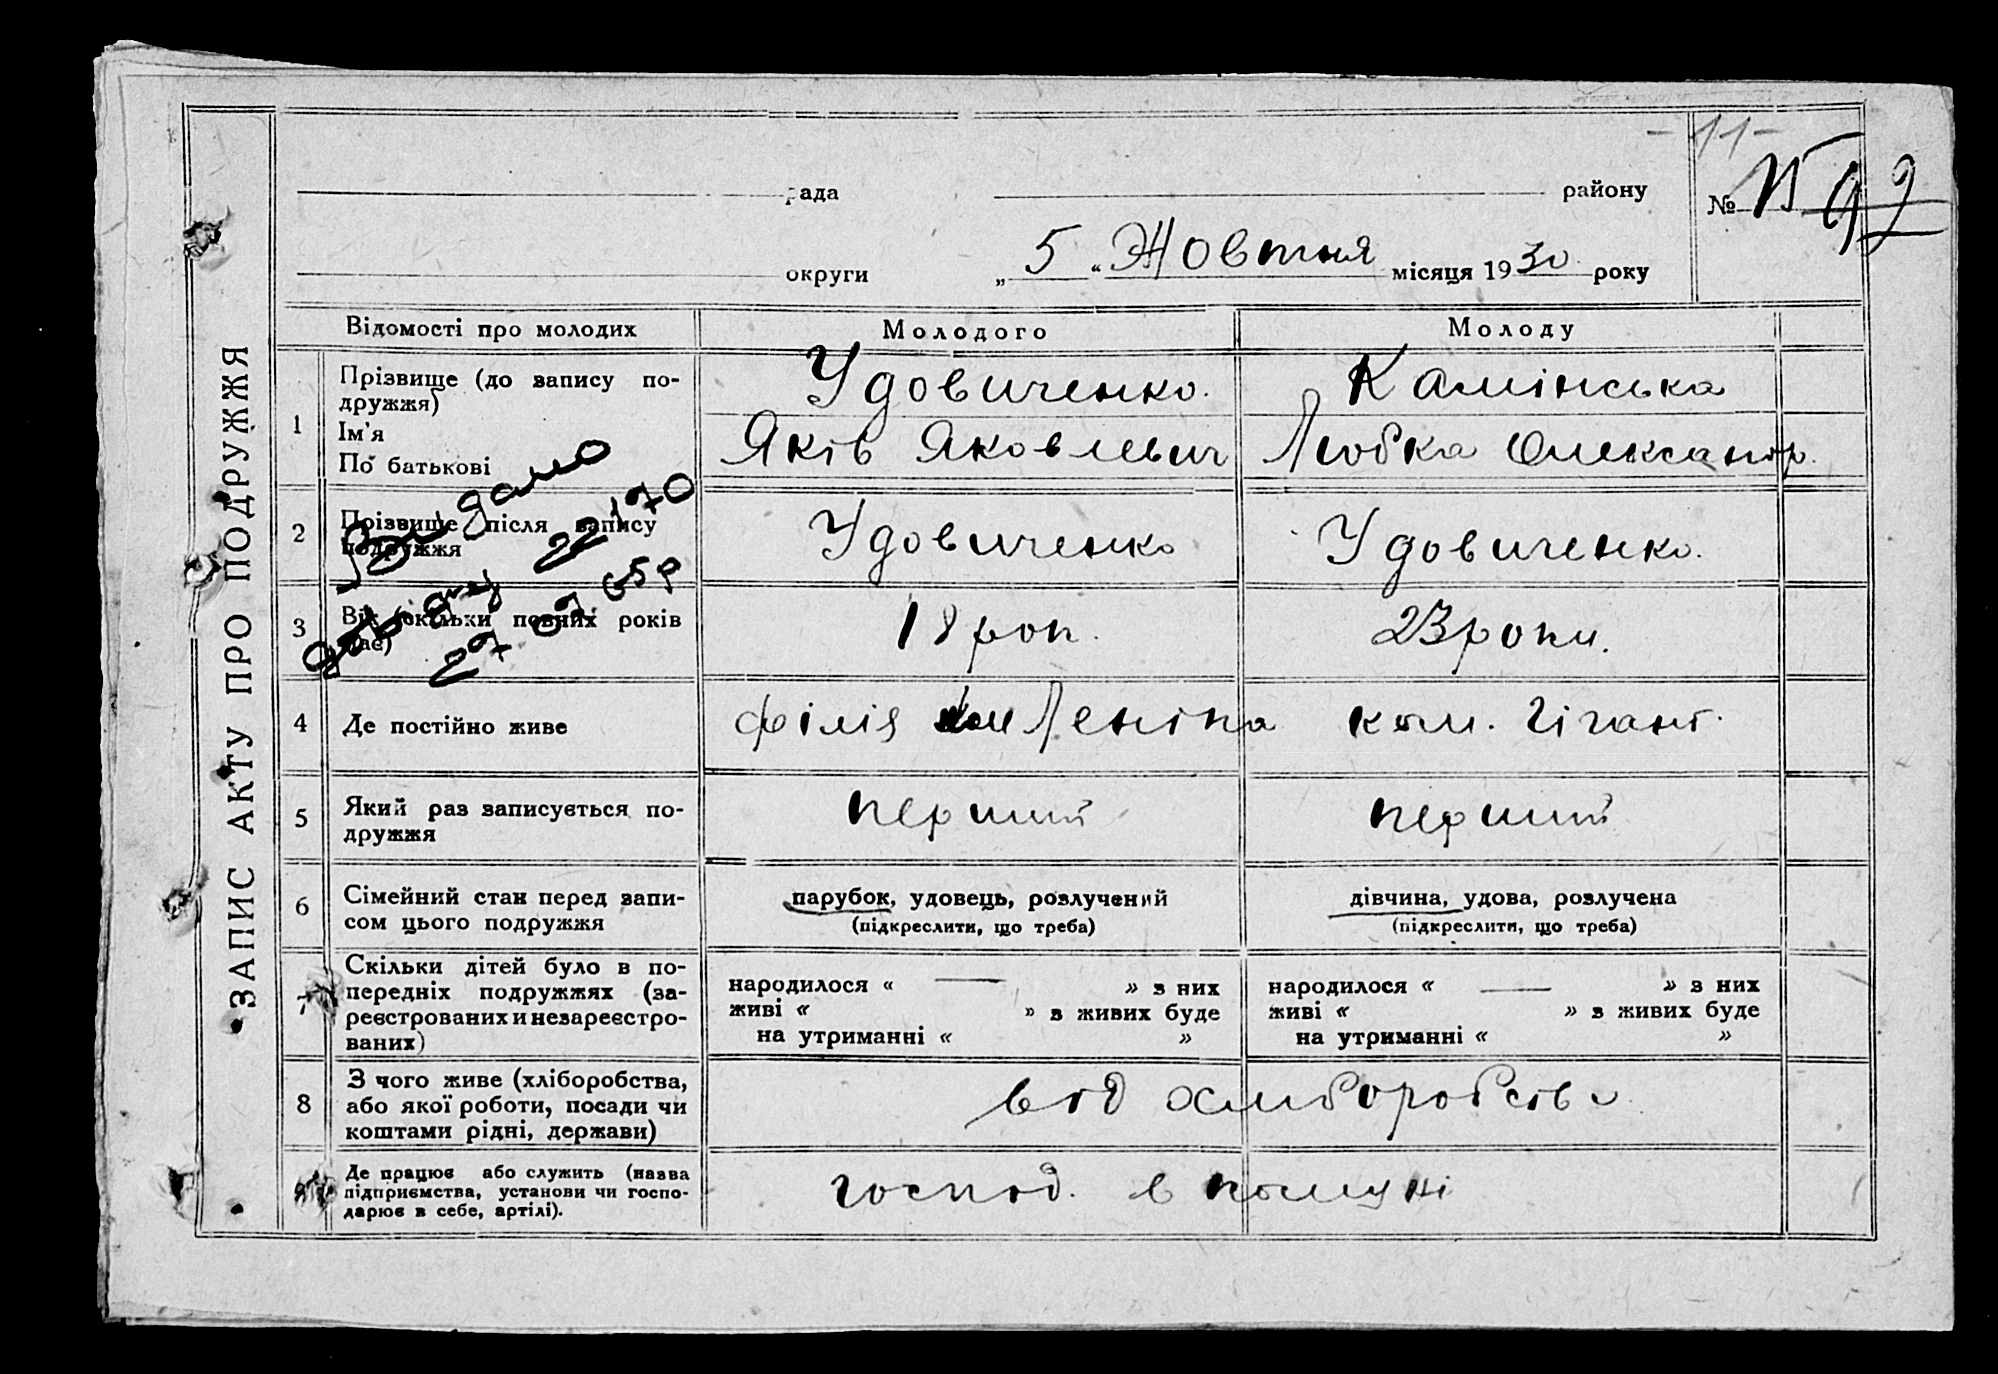 ЗАПИС АКТУ ПРО ПОДРУЖЖЯ
-11-
рада району № 92
округи „ 5 “ Жовтня місяця 1930 року
Відомості про молодих Молодого Молоду
1 Прізвище (до запису по-
дружжя) Удовиченко. Камінська
Ім'я
По батькові Яків Яковлевич Любка Олександр.
2 Прізвище після запису
подружжя Удовиченко Удовиченко.
3 Вік (скільки повних років
має) 18 рок. 23 роки.
Видано 22/70
27 09 65р
4 Де постійно живе філія Леніна ком. Гігант.
5 Який раз записується по-
дружжя перший перший
6 Сімейний стан перед запи-
сом цього подружжя
парубок, удовець, розлучений дівчина, удова, розлучена
(підкреслити, що треба) (підкреслити, що треба)
7 Скільки дітей було в по-
передніх подружжях (за-
реєстрованих и незареєстро-
ваних)
народилося « — » з них народилося « — » з них
живі « » з живих буде живі « » з живих буде
на утриманні « » на утриманні « »
8 З чого живе (хліборобства,
або якої роботи, посади чи
коштами рідні, держави)
від хліборобства
Де працює або служить (назва
підприємства, установи чи госпо-
дарює в себе, артілі).
господ. в комуні